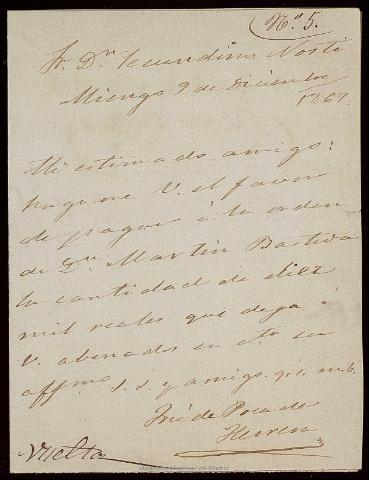 Nº 5.
Sr. Dn. Secundino Norti
Miengo 9 de Diciembre
1867.
Mi estimado amigo:
hagame V. el favor
de pagar á la orden
de Dn. Martin Bastida
la cantidad de diez
mil reales que deja á
V. abonados en cta su
affmo s. s. y amigo q. b. m. b.
José de Posada
Herrera
Vuelta